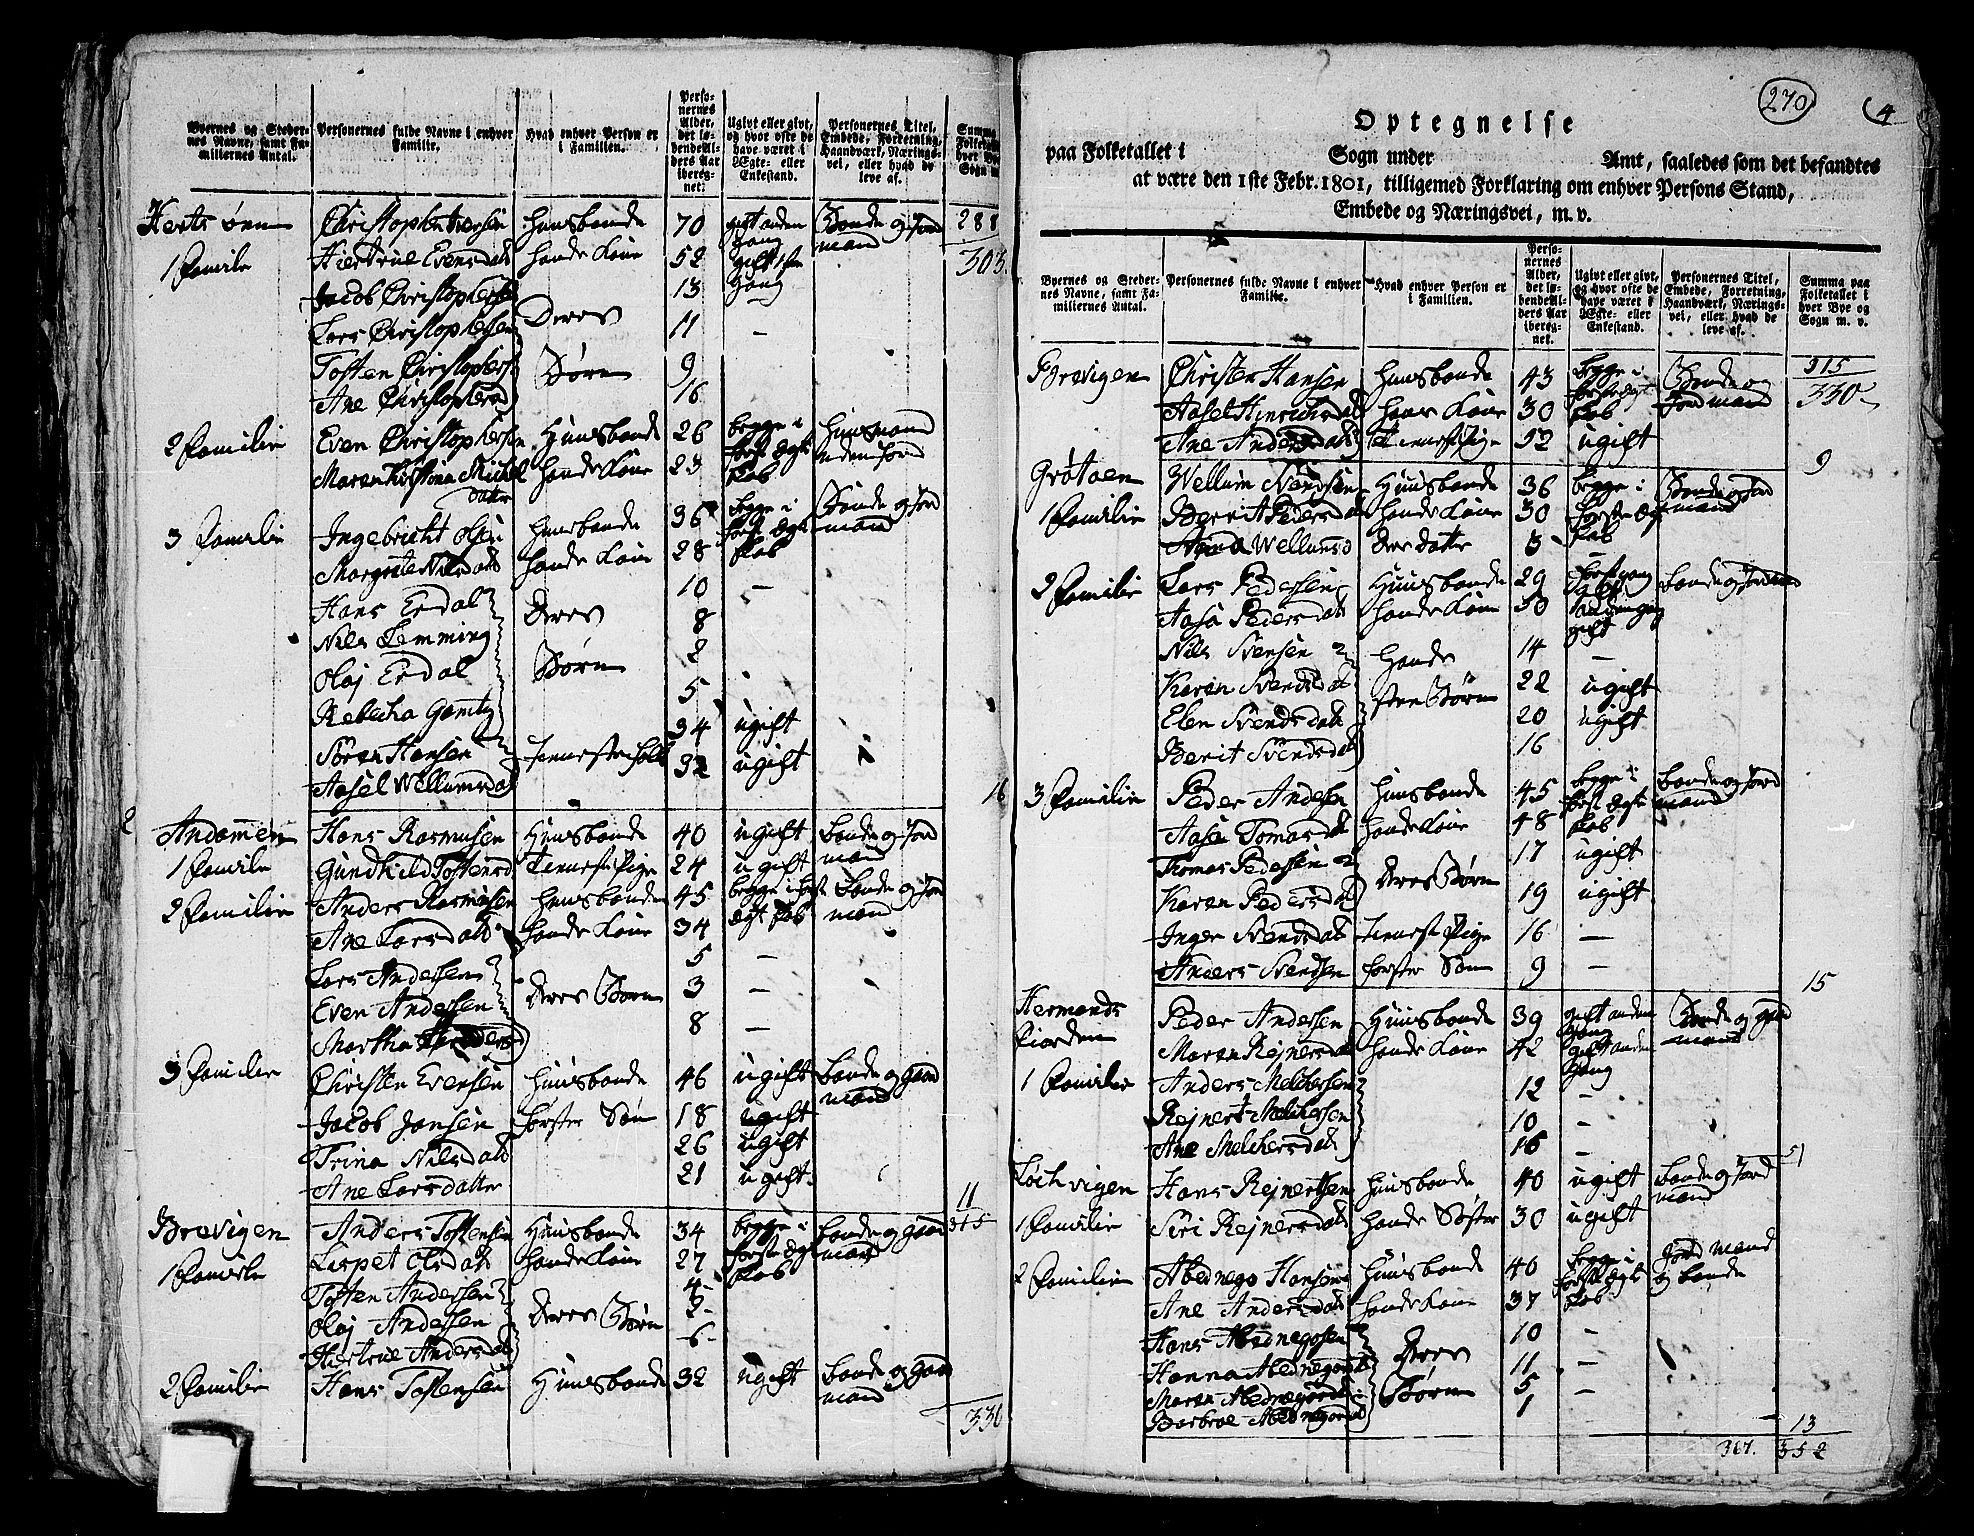 Byernes og Steder-
nes Navne, samt Fa-
miliernes Antal.
Personernes fulde Navne i enhver
Familie.
Hvad enhver Person er
i Familien.
Perso-
nernes
Alder,
det lø-
bende Al-
ders Aar
ibereg-
net.
Ugivt eller givt,
og hvor ofte de
have været i
Ægte- eller
Enkestand.
Personernes Titel,
Embede, Forretning,
Haandværk, Nærings-
vei, eller hvad de
leve af.
Summa
Folketallet
hver By
Sogn m.
288
303.
1 Familie Hiertrue Evensdatt hands Kone 52 gift 1ste gang
Jacob Christophers 13
Lars Christophersen Deres 11 —
Tosten Christophers Børn 9
Ane Christophersd 16
2 Familie Even Christophersen Huusbonde 26 begge i første Ægteskab Huusmand uden Jord
Maren Kirstina Mickelsdatter hands Kone 23
3 Familie Ingebricht Olsen Huusbonde 36 begge i første Ægteskab Bonde og Jord mand
Margrete Nilsdatt hands Kone 28
Hans Erdal Deres 10 —
Nils Lemming 8
Olaj Erdal Børn 2
Rebecka 5
Søren Hansen Tienestefolk 34 ugift
Aasel Wellumsdatt 32 ugift
16
Hans Rasmusen Huusbonde 40 ugift Bonde og Jord mand
1 Familie Gundhild Tostensd Tieneste Pige 24 ugift
2 Familie Anders Rasmusen Huusbonde 45 begge i første Ægteskab Bonde og Jord mand
Ane Larsdatt hands Kone 34
Lars Andersen 5 —
Even Andersen Deres Børn 3 —
Martha 8 —
3 Familie Christen Evensen Huusbonde 46 ugift Bonde og gaard mand
Jacob Jansen foster Søn 18 ugift
Trina Nilsdatt 26 ugift
Ane Larsdatter 21 ugift
11
315
Brevigen Anders Tostensen Huusbonde 34 begge i første Ægteskab Bonde og gaard mand
1 Familie Lispet Olsdatt hands Kone 27
Tosten Andersen 4
Olaj Andersen Deres Børn 2
Hiertrue Andersdatt 6
2 Familie Hans Tostensen Huusbonde 32 ugift Bonde og gaard mand
330
270
4
Optegnelse
paa Folketallet i Sogn under Amt, saaledes som det befandtes
at være den 1ste Febr. 1801, tilligemed Forklaring om enhver Persons Stand,
Embede og Næringsvei, m. v.
Byernes og Steder-
nes Navne, samt Fa-
miliernes Antal.
Personernes fulde Navne i enhver
Familie.
Hvad enhver Person er
i Familien.
Perso-
nernes
Alder,
det lø-
bende Al-
ders Aar
ibereg-
net.
Ugivt eller givt,
og hvor ofte de
have været i
Ægte- eller
Enkestand.
Personernes Titel,
Embede, Forretning,
Haandværk, Nærings-
vei, eller hvad de
leve af.
Summa paa
Folketallet i
hver Bye og
Sogn m. v.
Brevigen Christen Hansen Huusbonde 43 begge i første Ægteskab Bonde og Jord mand 315
330
Aasel Hinrichsdatt hans Kone 30
Ane Andersdatt Tieneste Pige 52 ugift
9
Grøtøen Wellum Svendsen Huusbonde 36 begge i første Ægteskab Bonde og Jord mand
1 Familie Berrit Pedersdatt hands Kone 30
Wellumsd Deres datter 3
2 Familie Lars Pedersen Huusbonde 29 første gang gift Bonde og Jord mand
Aasa Pedersdatt hands Kone 50 anden gang gift
Nils Svensen hendes 14 —
Karen Svendsdatt første Børn 22 ugift
Elen Svendsdatt 20 ugift
Berit Svendsdatt 16
3 Familie Peder Andersen Huusbonde 45 begge i første Ægteskab Bonde og Jord mand
Aasa Tomasdatt hands Kone 48
Tomas Pedersen Deres Børn 17 ugift
Karen Pedersdatt 19 ugift
Inger Svendsdatt Tieneste Pige 16 —
Anders Svendsen foster Søn 9 —
15
Hermands
Fiorden Peder Andersen Huusbonde 39 gift anden gang Bonde og gaard mand
Maren Rejnersdatt hands Kone 42 gift anden gang
1 Familie Anders Melchersen 12 —
Rejnert Melchersen 10 —
Ane Melchersdatt 16 —
51
Løchvigen Hans Rejnertsen Huusbonde 40 ugift Bonde og Jord mand
1 Familie Siri Rejnersdatt hands Søster 30 ugift
2 Familie Abednego Hansen Huusbonde 40 begge i første Ægteskab Jord mand og bonde
Ane Andersdatt hands Kone 37
Hans Abednegosen Deres 10 —
Hanna Abednegosdt 11 —
Maren Abednegosdt Børn 5 —
Barbroe Abednegosd 1
13
367. 352